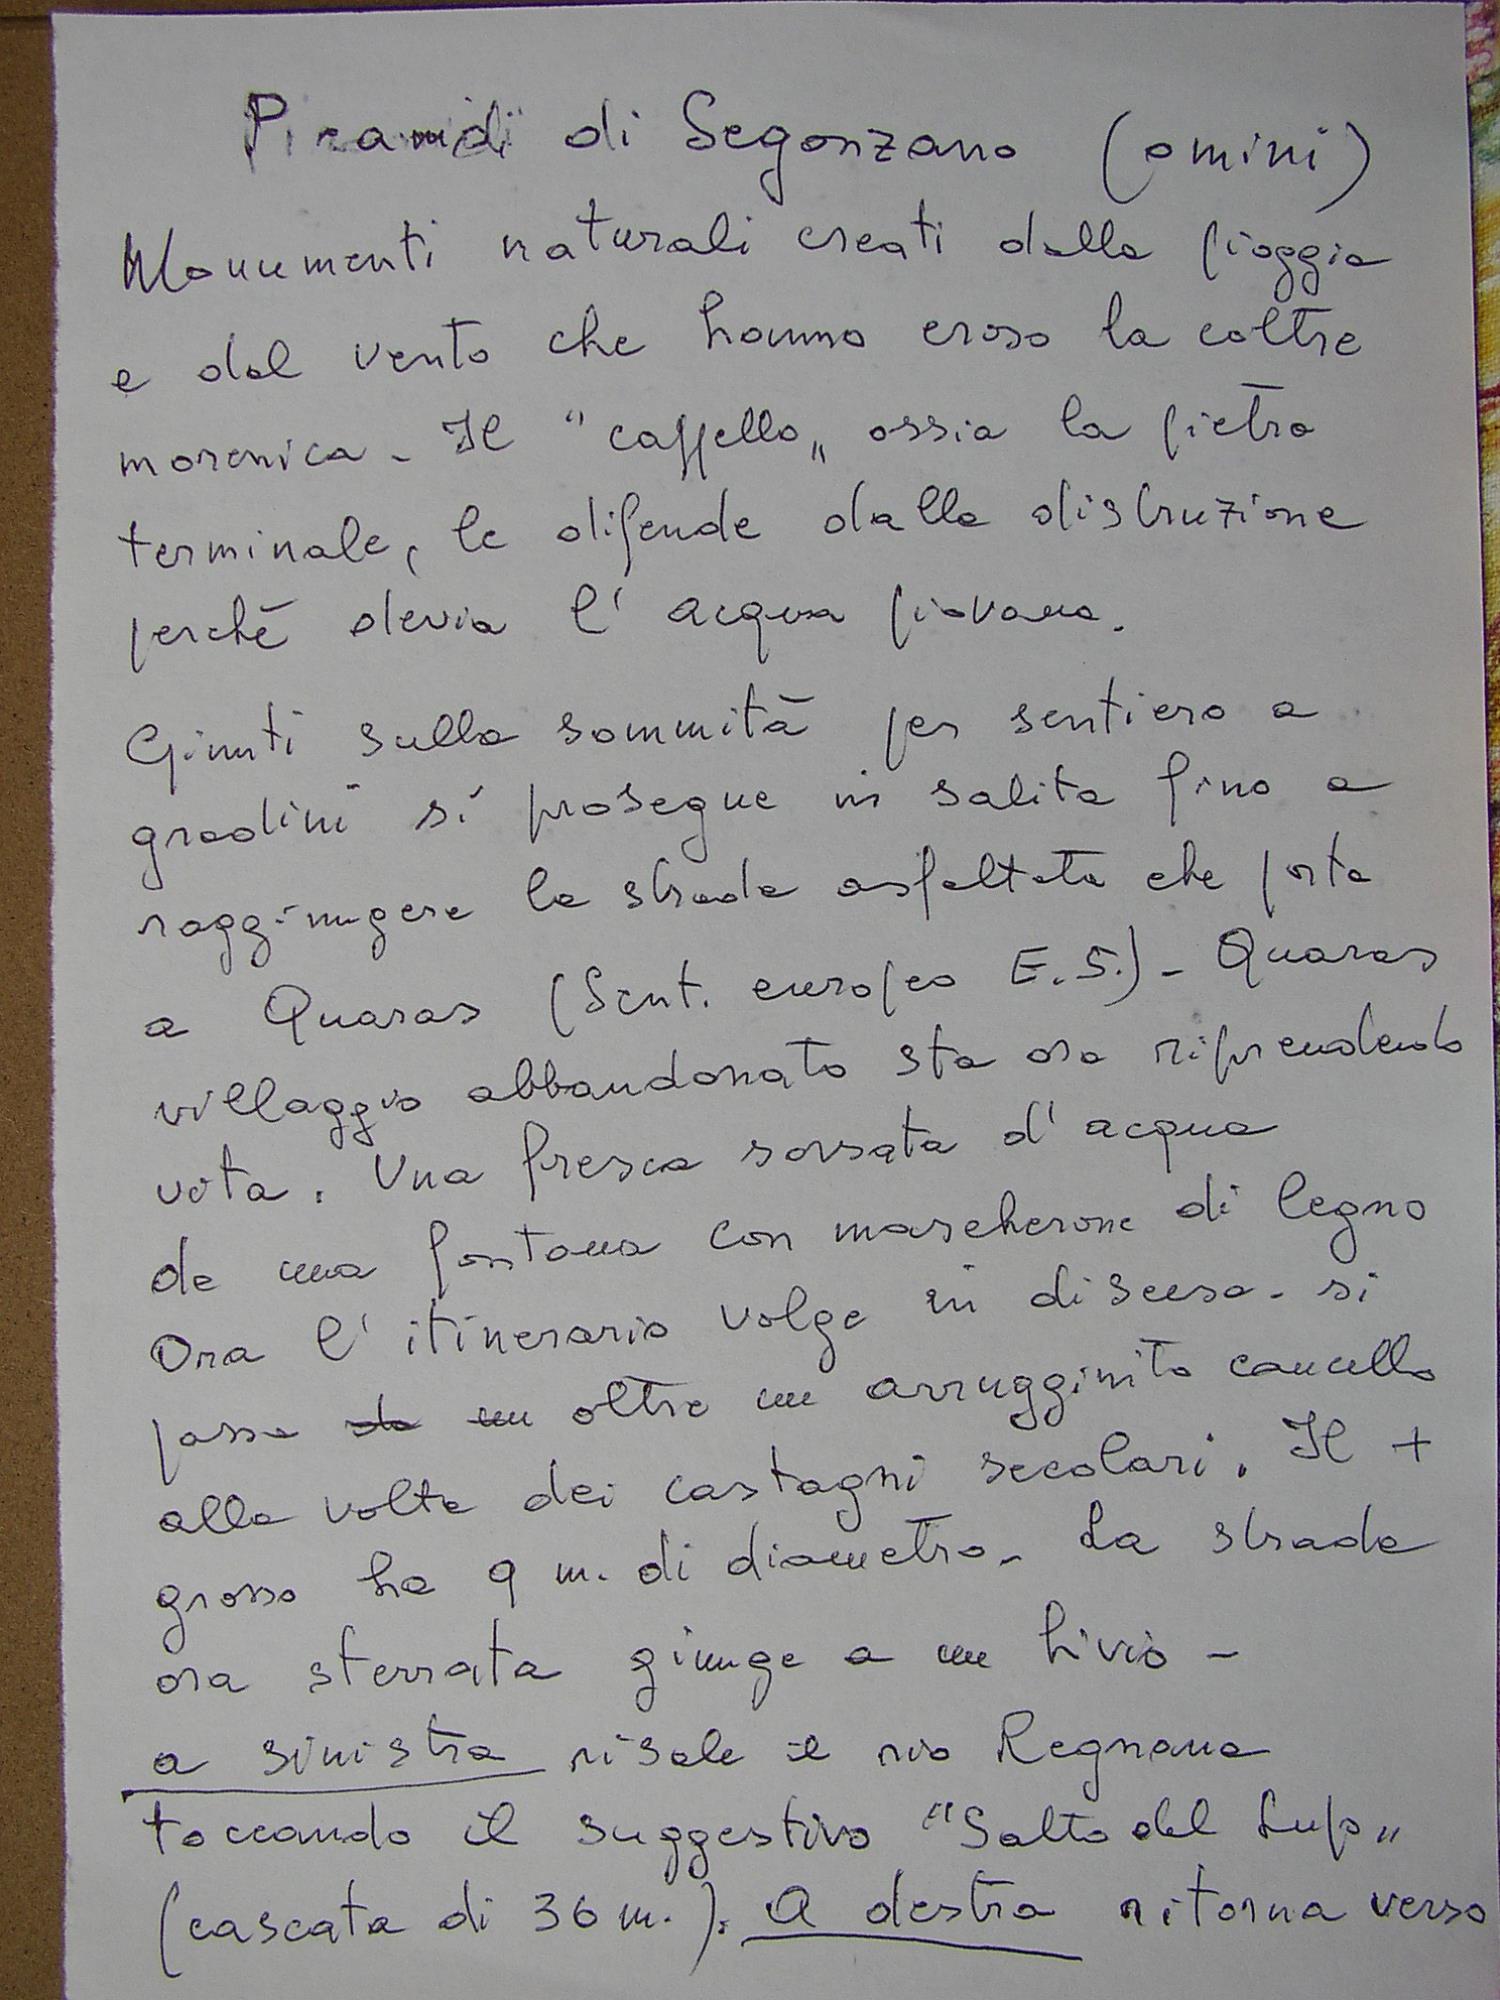 Piramidi di Segonzano (omini)
Monumenti naturali creati dalla pioggia
e dal vento che hanno eroso la coltre
morenica - Il "cappello„ ossia la pietra
terminale, le difende dalla distruzione
perchè devia l'acqua piovana.
Giunti sulla sommità per sentiero a
gradini si prosegue in salita fino a
raggiungere la strada asfaltata che porta
a Quaras (Sent. europeo E.5.) - Quaras
villaggio abbandonato sta ora riprendendo
vita. Una fresca sorsata d'acqua
da una fontana con mascherone di legno
Ora l'itinerario volge in discesa - si
passa da un oltre un arrugginito cancello
alla volta dei castagni secolari. Il +
grosso ha 9 m. di diametro - La strada
ora sterrata giunge a un bivio -
a sinistra risale il rio Regnana
toccando il suggestivo "Salto del Lupo„
(cascata di 36 m.). A destra ritorna verso